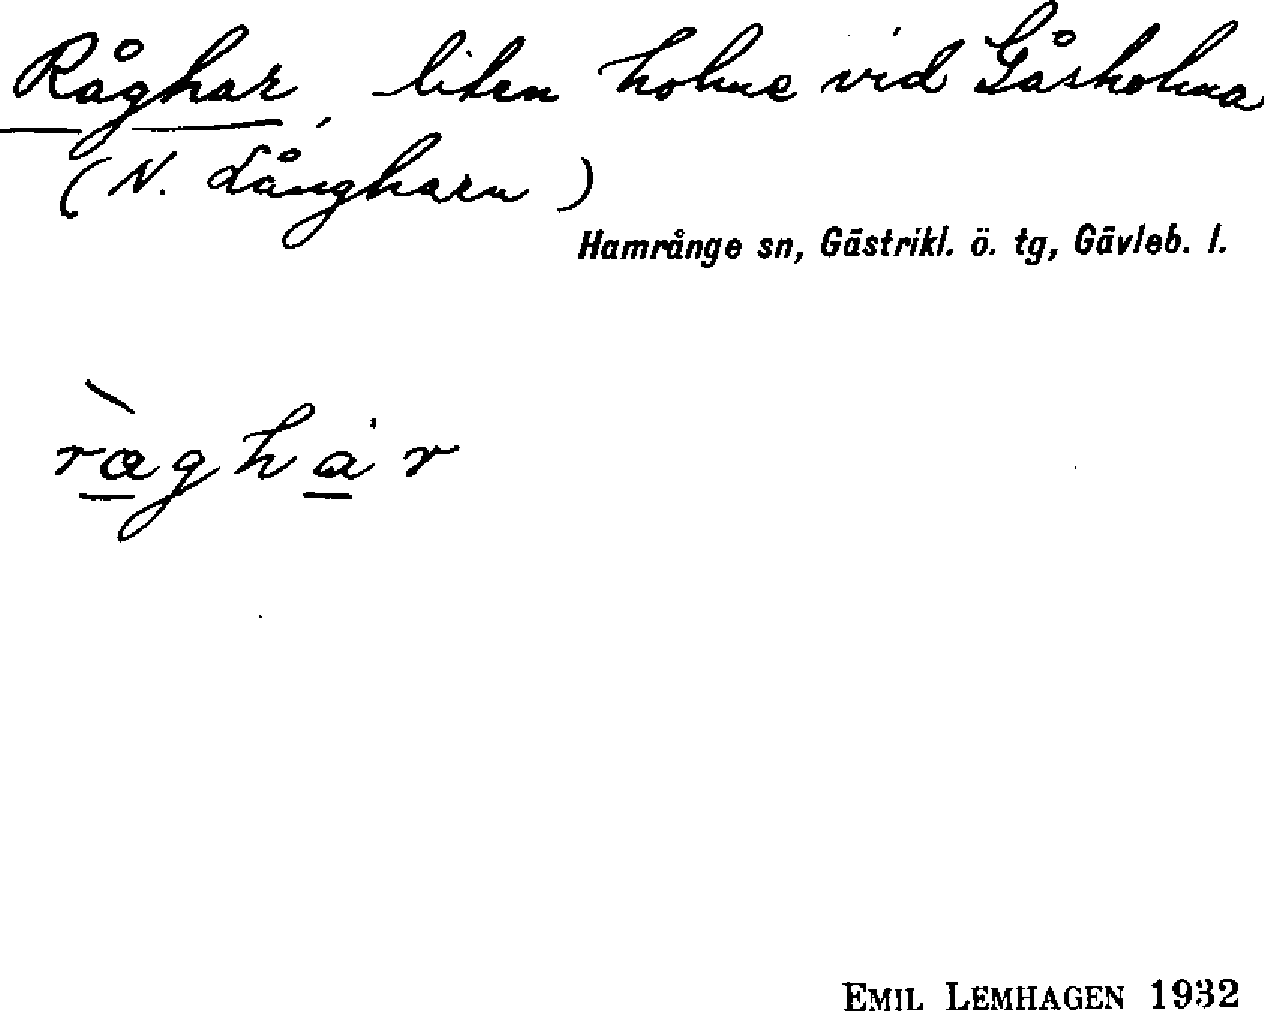 Råghar, liten holme vid Gåsholma
(N. Långharn)
Hamrånge sn, Gästrikl. ö. tg, Gävleb. l.
ràghár
EMIL LEMHAGEN 1932